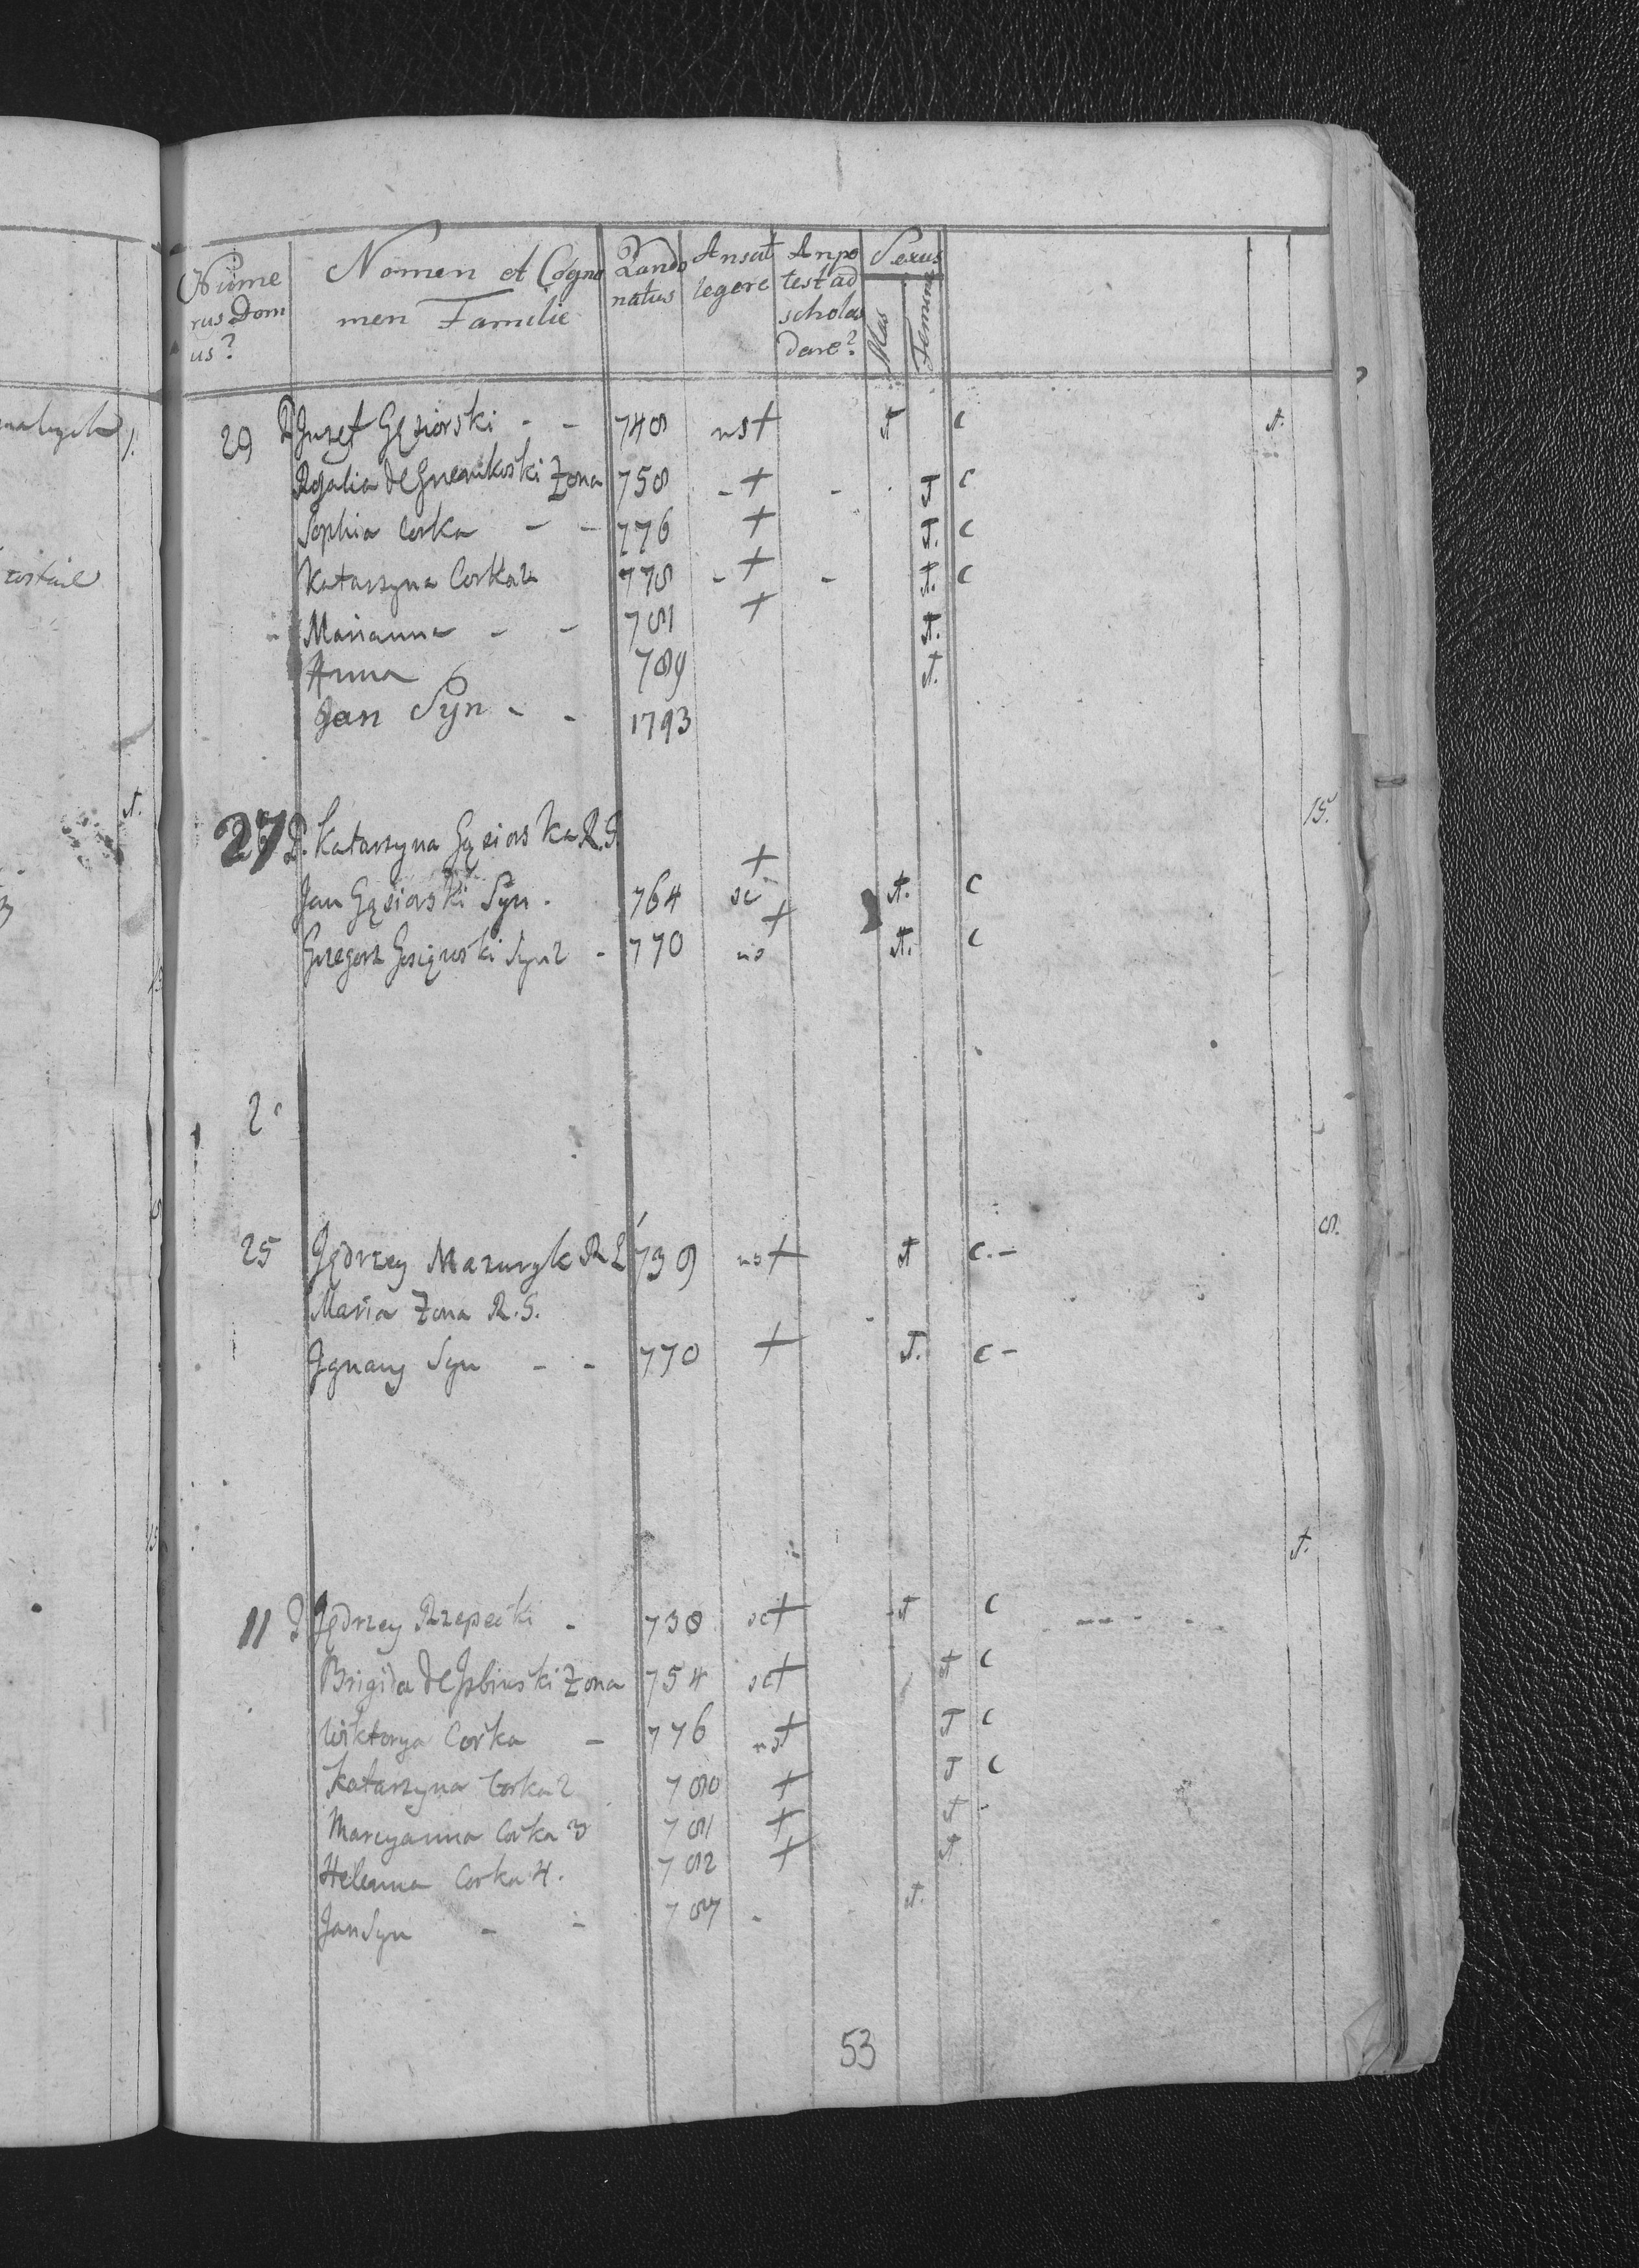 Nume rus Dom us?
Nomen et Cogno men Familie
Qando natus
An scit legere
An po test ad scholas dare?
Sexus
Mas
Femina
29 P Juzef Gęsiorski - - 748 nst t c t.
Rosalia de Zona 758 - + - T c
Sophia Corka - - 776 + T. c
Katarzyna Corka 2 778 - + - t. c
Marianna - - 781 + t.
Anna 789 t.
Jan Syn - - 1793
15.
27 P. Katarzyna Gąsiorska R. S.
Jan Gąsiorski Syn. 764 sc + t. c
Grzegorz Syn 2 - 770 ns + t. c
2
S.
25 Jędrzey Mazuryk R L 739 ns + t c. -
Maria Zona R. S.
Ignacy Syn - - 770 + T. c -
t.
11 P Jędrzey Rzepecki - 738 sct t c
Brigida de Zona 754 sct t c
Wiktorya Corka - 776 nst T c
Katarzyna Corka 2 780 + T c
Maryanna Corka 3 781 + t -
Helenna Corka 4. 782 + t
Jan Syn - - 787 - t.
53